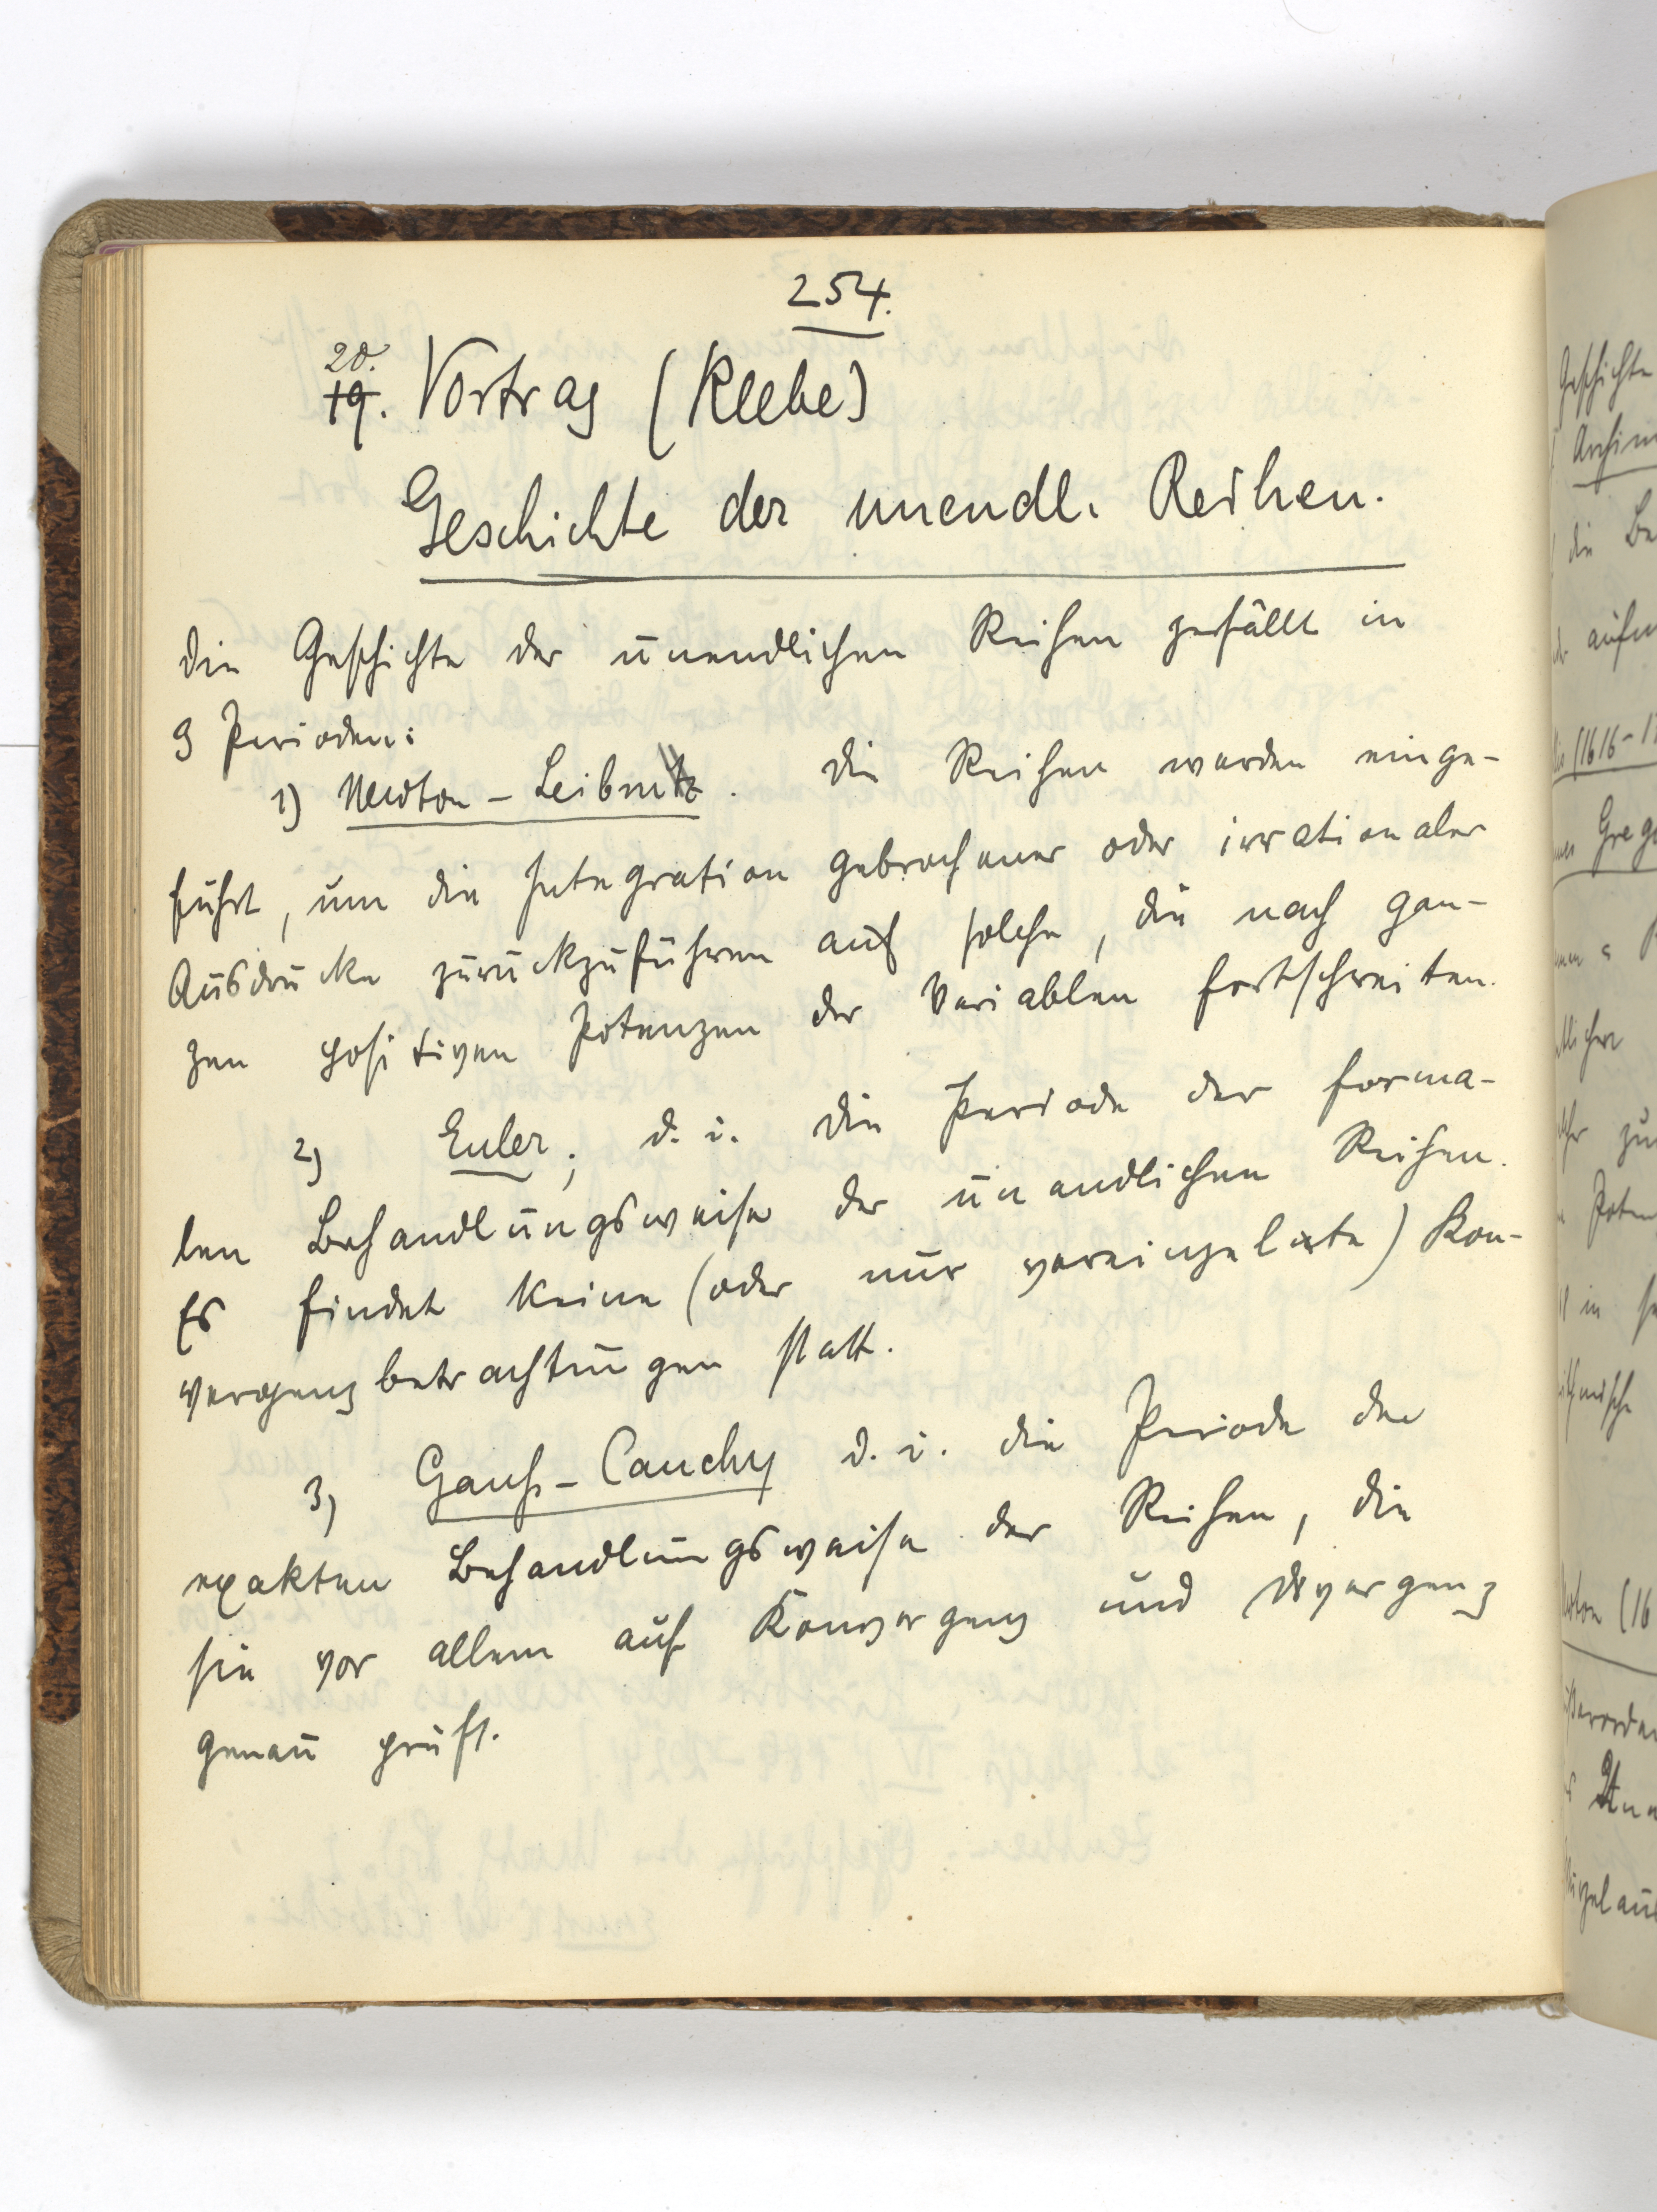 254.
20.
19. Vortrag (Klebe)
Geschichte der unendl. Reihen.
Die Geschichte der unendlichen Reihen zerfällt in
3 Perioden:
1) Newton - Leibnitz. Die Reihen werden einge-
führt, um die Integration gebrochener oder irrationaler
Ausdrücke zurückzuführen auf solche, die nach gan-
zen positiven Potenzen der Variablen fortschreiten.
2) Euler; d. i. die Periode der forma-
len Behandlungsweise der unendlichen Reihen.
Es findet keine (oder nur vereinzelte) Kon-
vergenzbetrachtungen statt.
3) Gauß - Cauchy d. i. die Periode der
exakten Behandlungsweise der Reihen, die
sie vor allem auf Konvergenz und Divergenz
genau prüft.
Geschichte
Archim
die Be
(1616-1
Grego
zu
Poten
in
(16